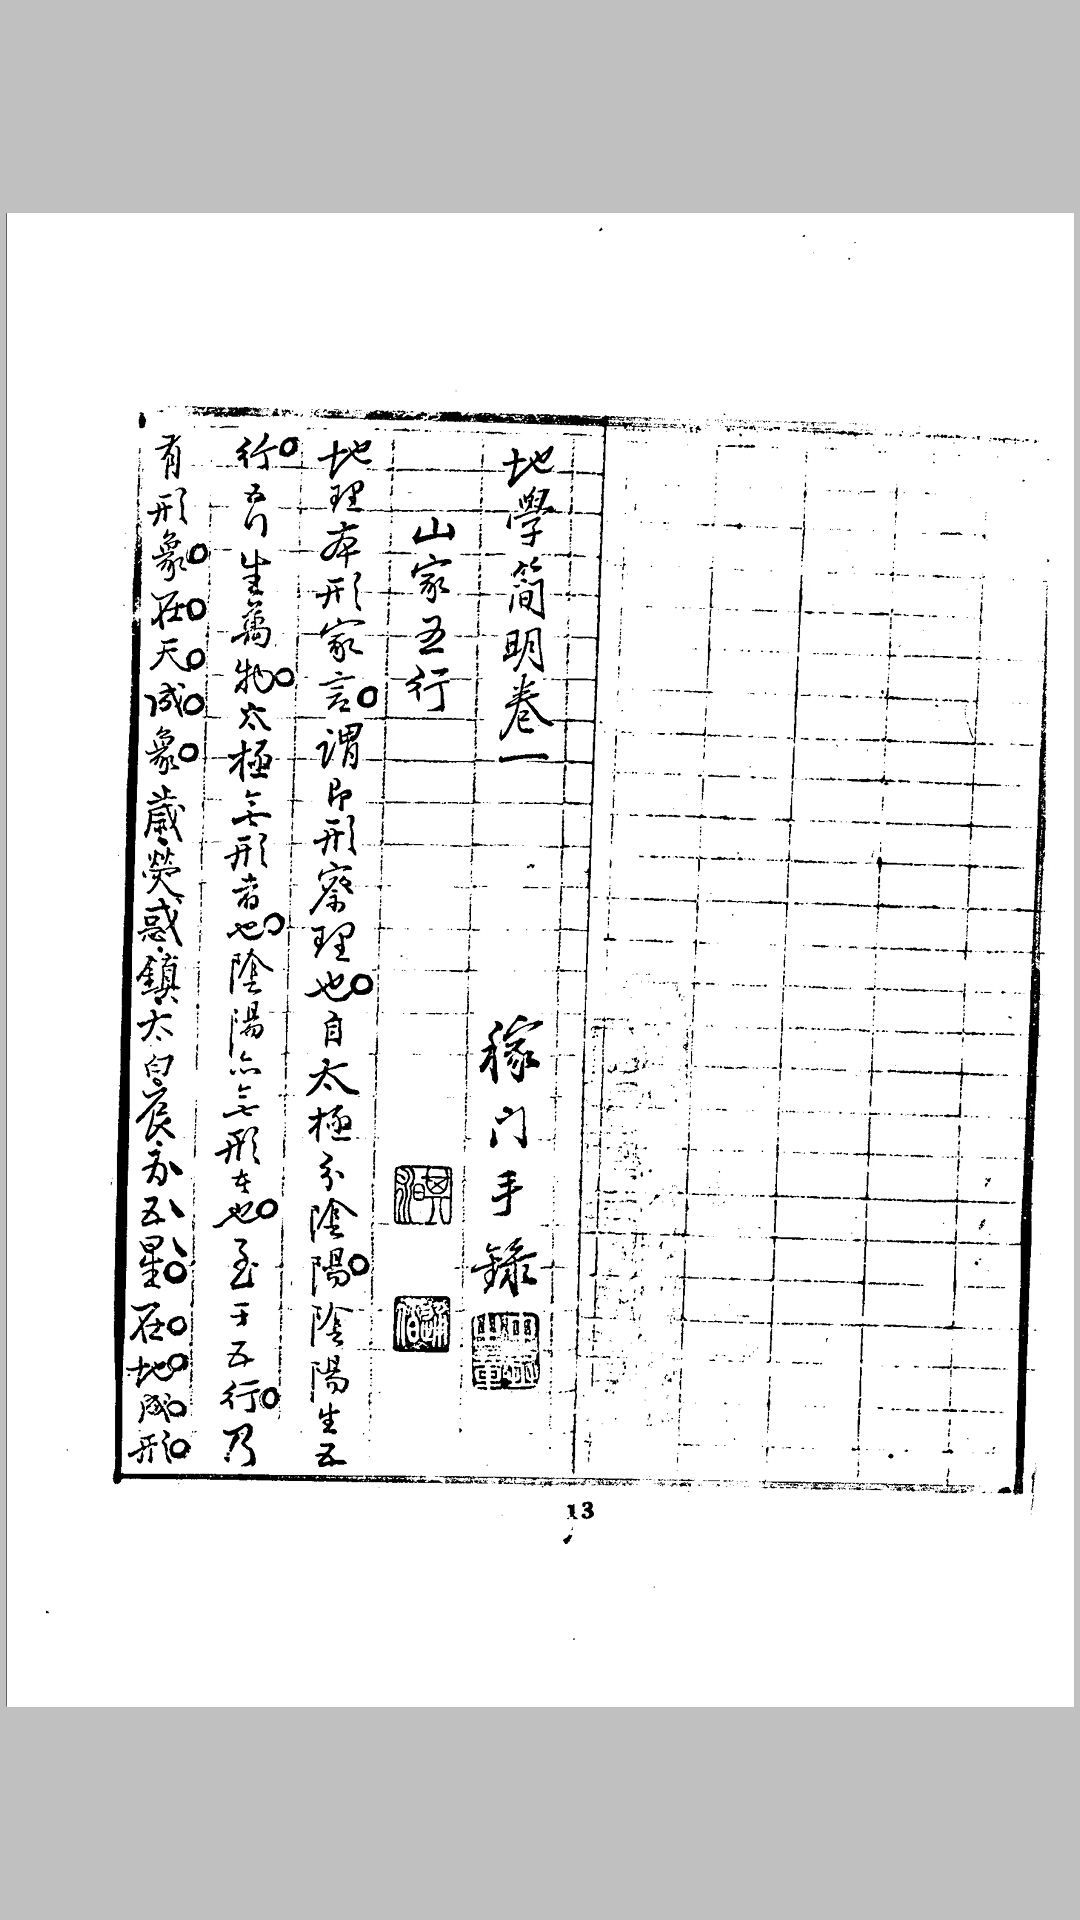 地學簡明卷一
稼门手錄
山家五行
地理本形家言。謂即形察理也。自太極分陰陽。陰陽生五
行。五行生萬物。太極無形者也。陰陽亦無形者也。至于五行。乃
有形象。在。天。成。象。歲熒惑鎮太白辰為五星。在。地。成。形。
13